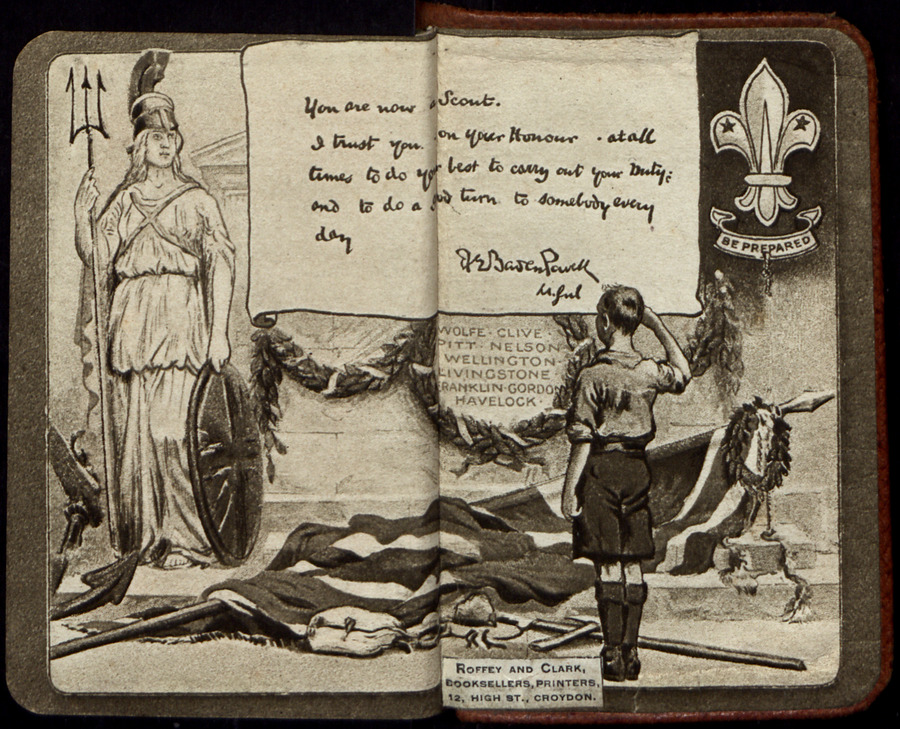 You are now a Scout.
I trust you. on your Honour - at all
times to do your best to carry out your Duty:
and to do a good turn to somebody every
day
Baden Powell
BE PREPARED
WOLFE · CLIVE ·
PITT · NELSON
WELLINGTON ·
LIVINGSTONE
FRANKLIN · GORDON
HAVELOCK ·
ROFFEY AND CLARK,
BOOKSELLERS, PRINTERS,
12, HIGH ST., CROYDON.